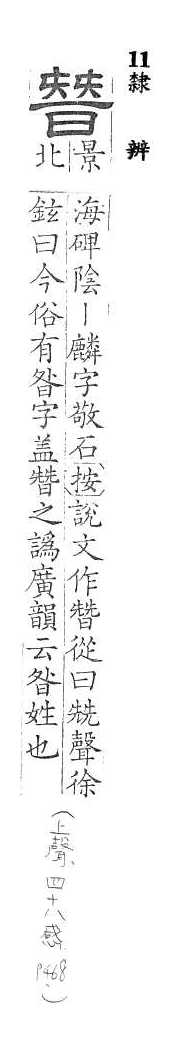 11 隸辨
朁
景北
海碑陰丨麟字敬石按說文作朁從曰兓聲徐
鉉曰今俗有昝字盖朁之譌廣韻云昝姓也
(上聲、四十八感 P468.)